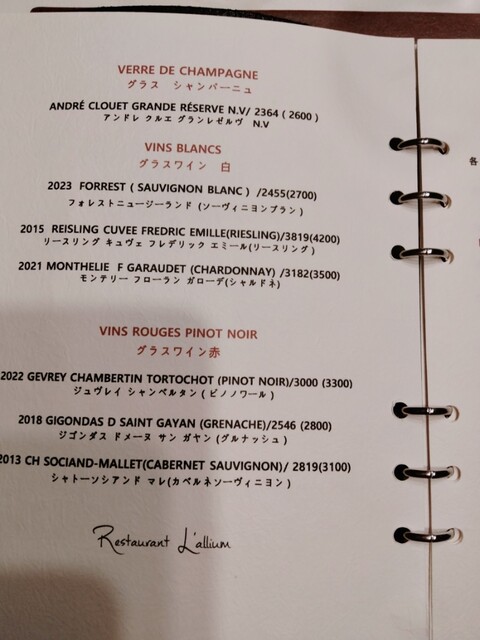 VERRE DE CHAMPAGNE
グラス　シャンパーニュ
ANDRÉ CLOUET GRANDE RÉSERVE N.V/ 2364 ( 2600 )
アンドレ クルエ グランレゼルヴ　N.V
VINS BLANCS
グラスワイン　白
2023 FORREST ( SAUVIGNON BLANC ) /2455(2700)
フォレストニュージーランド (ソーヴィニヨンブラン )
2015 REISLING CUVEE FREDRIC EMILLE(RIESLING)/3819(4200)
リースリング キュヴェ フレデリック エミール(リースリング )
2021 MONTHELIE F GARAUDET (CHARDONNAY) /3182(3500)
モンテリー フローラン ガローデ(シャルドネ)
VINS ROUGES PINOT NOIR
グラスワイン赤
2022 GEVREY CHAMBERTIN TORTOCHOT (PINOT NOIR)/3000 (3300)
ジュヴレイ シャンベルタン ( ピノノワール )
2018 GIGONDAS D SAINT GAYAN (GRENACHE)/2546 (2800)
ジゴンダス ドメーヌ サン ガヤン (グルナッシュ )
2013 CH SOCIAND-MALLET(CABERNET SAUVIGNON)/ 2819(3100)
シャトーソシアンド マレ(カベルネソーヴィニヨン )
Restaurant L'allium
各